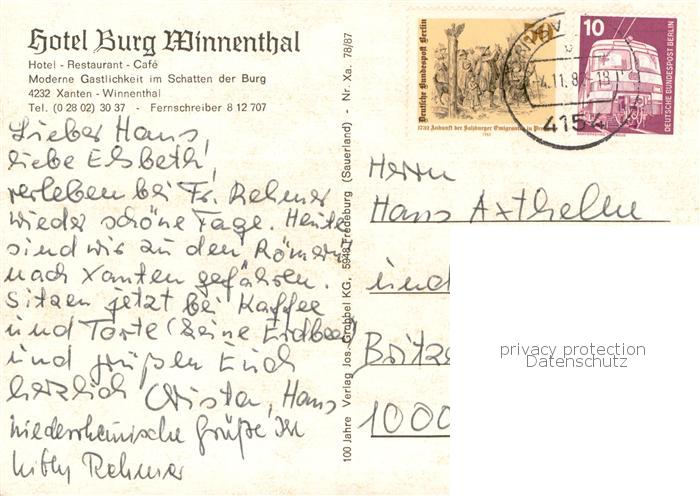 Hotel Burg Winnenthal
Hotel - Restaurant - Café
Moderne Gastlichkeit im Schatten der Burg
4232 Xanten - Winnenthal
Tel. (0 28 02) 30 37 - Fernschreiber 8 12 707
Lieber Hans,
liebe Elsbeth,
verleben bei Fr. Rehmer
wieder schöne Tage. Heute
sind wir zu den Römern
nach Xanten gefahren.
Sitzen jetzt bei Kaffee
und Torte (keine Erdbeer)
und grüßen Euch
herzlich Christa, Hans
niederrheinische Grüße Ihr
Rehmer
100 Jahre Verlag Jos. Grobbel KG, 5948 Fredeburg (Sauerland) - Nr. Xa. 78/87
Deutsche Bundespost Berlin
50
1732 Ankunft der Salzburger Emigranten in
1982
10
DEUTSCHE BUNDESPOST BERLIN
4.11.8
4154
Herrn
Hans Axthelm
und
Britze
1000
privacy protection
Datenschutz